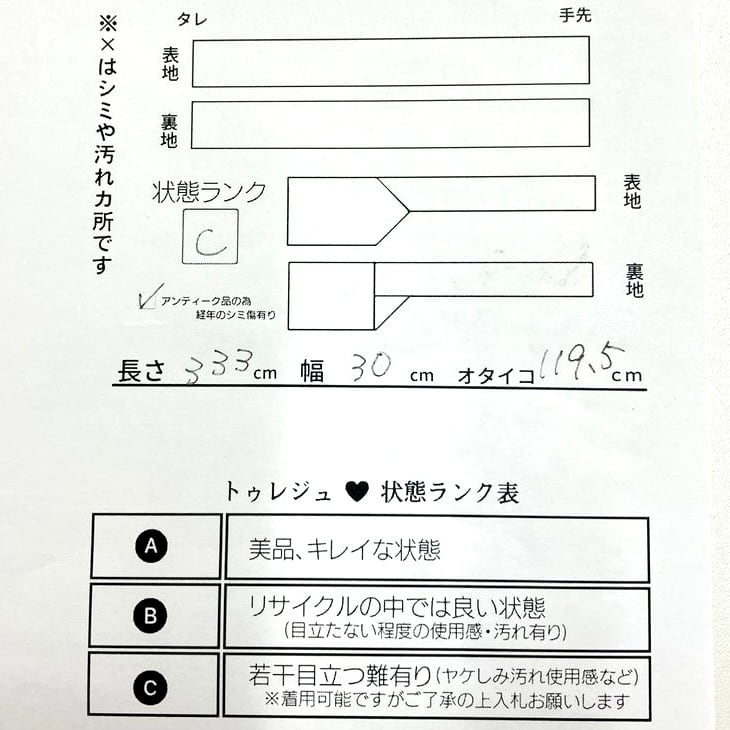 ※×はシミや汚れカ所です
タレ 手先
表地
裏地
状態ランク
C
表地
裏地
アンティーク品の為
経年のシミ傷有り
長さ 333 cm 幅 30 cm オタイコ 119.5 cm
トゥレジュ♥状態ランク表
A 美品、キレイな状態
B リサイクルの中では良い状態
(目立たない程度の使用感・汚れ有り)
C 若干目立つ難有り(ヤケしみ汚れ使用感など)
※着用可能ですがご了承の上入札お願いします